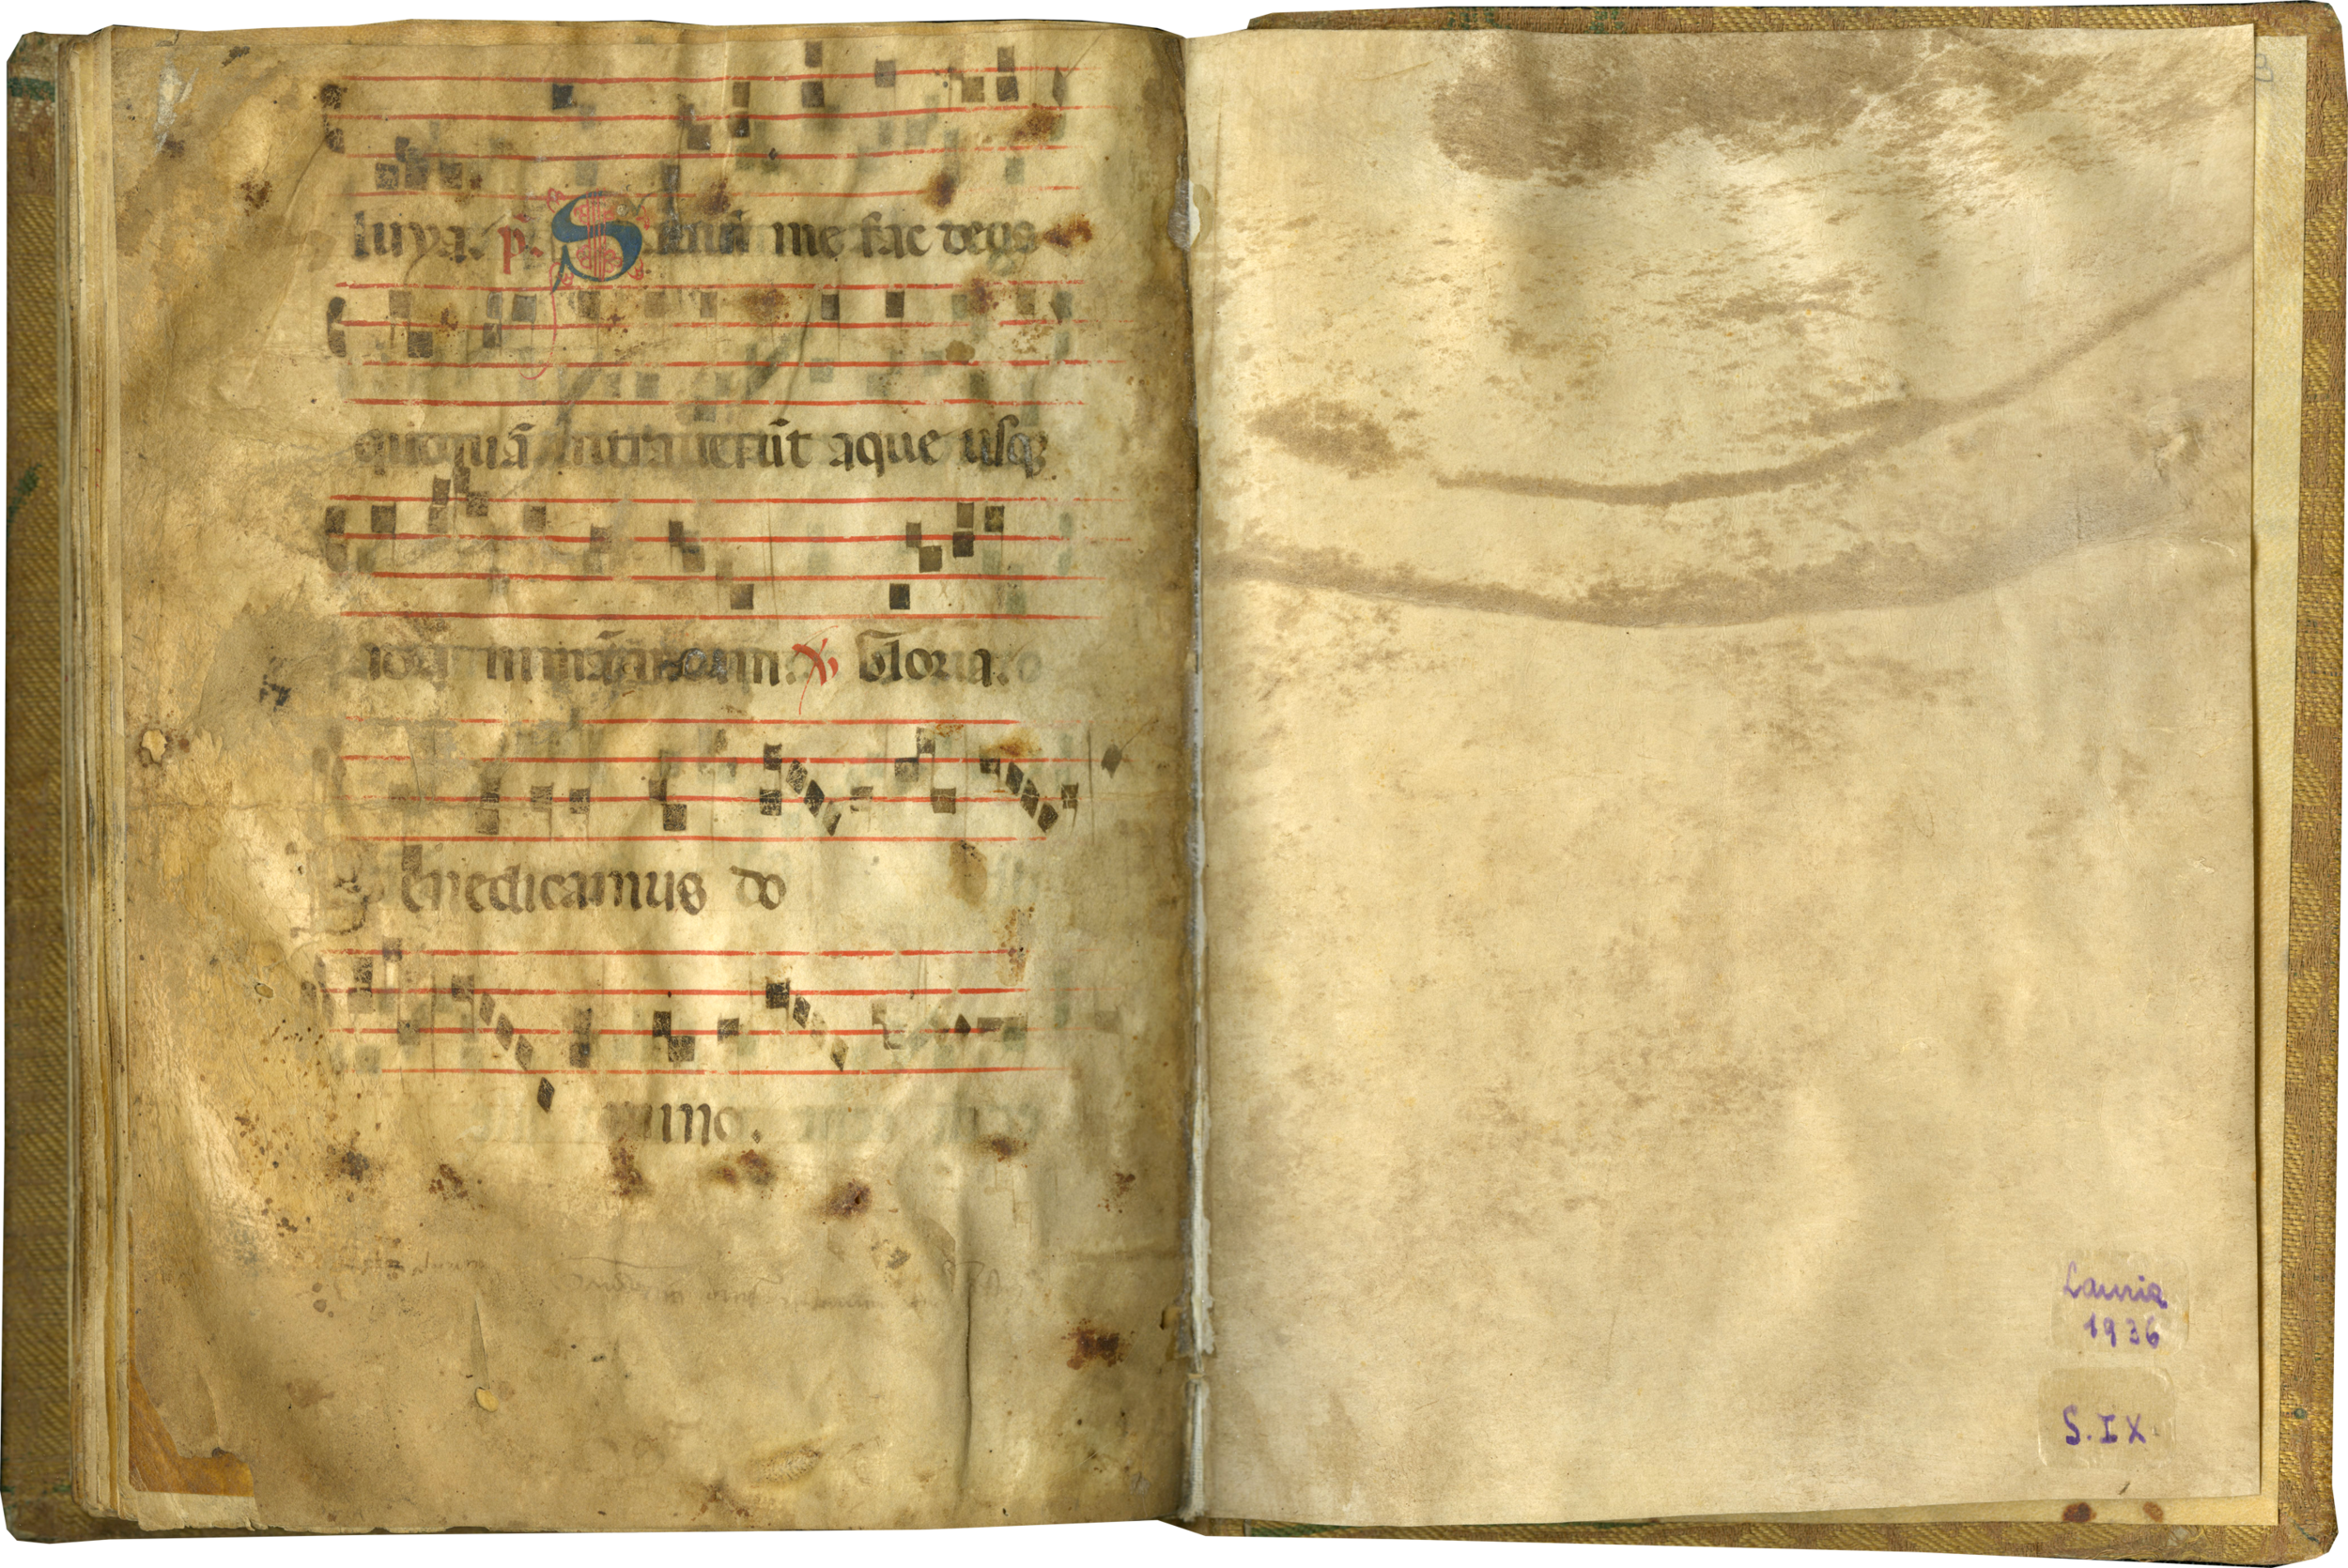 luya. p̃. Saluũ me fac deus
quoniã intrauerũt aque usq̃
ad aĩam meam. Gloria.
Benedicamus do
mino.
Lauria
1936
S. IX